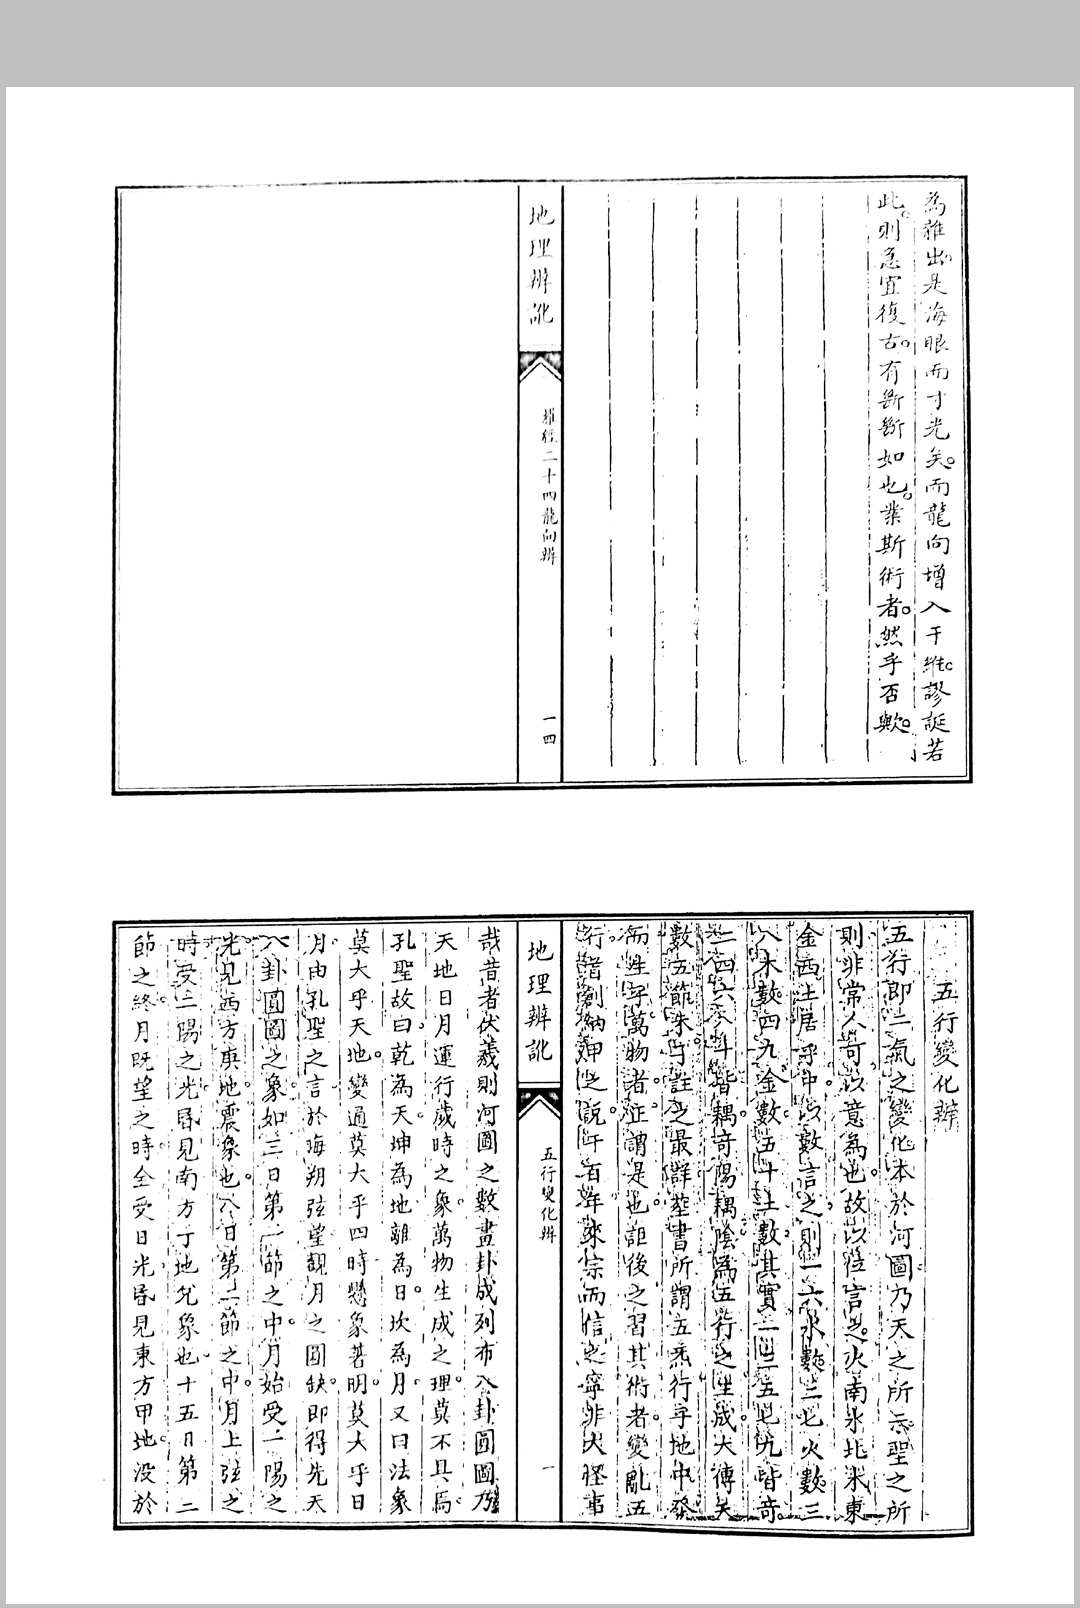 為雜出是海眼而寸光矣而龍向增入干維謬誕若
此則急宜復古有斷斷如也業斯術者然乎否歟
地理辨訛
羅經二十四龍向辨
一四
五行變化辨
五行即二氣之變化本於河圖乃天之所示聖之所
則非常人可以意為也故以位言之火南水北木東
金西土居乎中以數言之則一六水數二七火數三
八木數四九金數五十土數其實一三五七九皆奇
二四六八十皆耦奇陽耦陰為五行之生成大傳天
數五節朱子註之最詳葬書所謂五炁行乎地中發
而生乎萬物者正謂是也詎後之習其術者變亂五
行者創納甲之說千百年來宗而信之寧非大怪事
地理辨訛
五行變化辨
一
哉昔者伏羲則河圖之數畫卦成列布八卦圓圖乃
天地日月運行歲時之象萬物生成之理莫不具焉
孔聖故曰乾為天坤為地離為日坎為月又曰法象
莫大乎天地變通莫大乎四時懸象著明莫大乎日
月由孔聖之言於晦朔弦望觀月之圓缺即得先天
八卦圓圖之象如三日第一節之中月始受一陽之
光見西方庚地震象也八日第二節之中月上弦之
時受二陽之光昏見南方丁地兌象也十五日第三
節之終月既望之時全受日光昏見東方甲地沒於